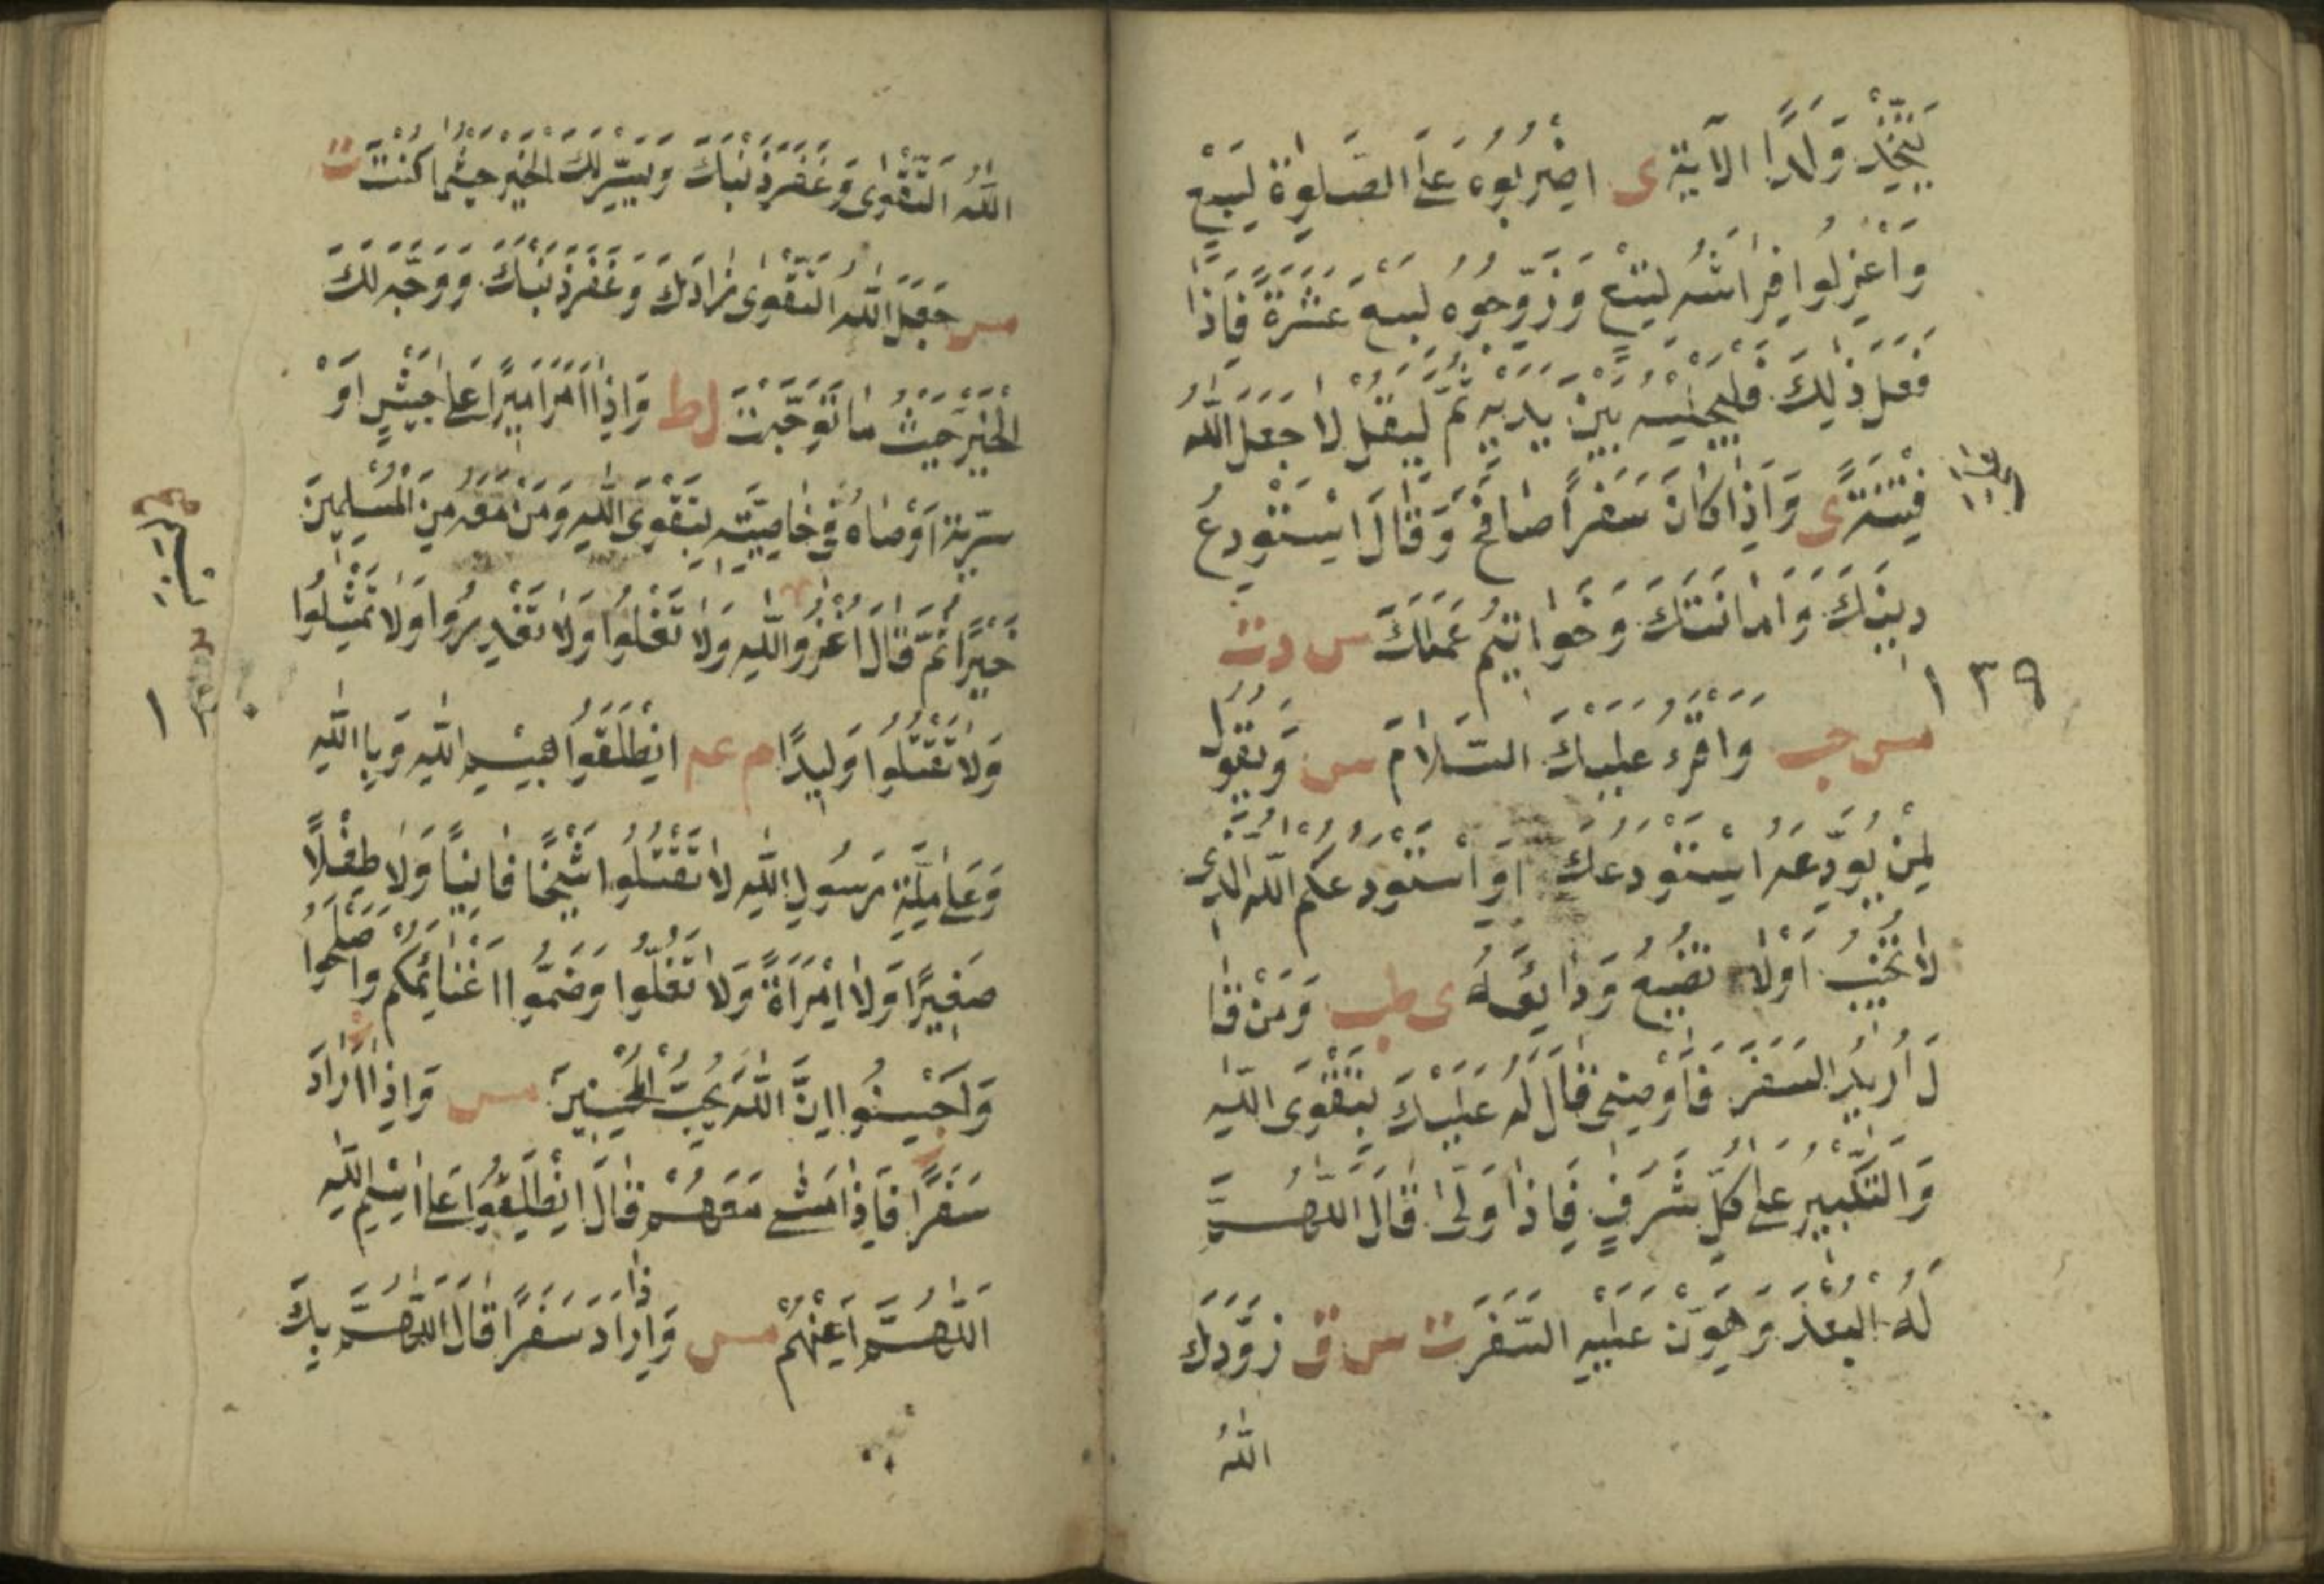 يَتَّخِذْ وَلَدًا الآيَة ى اضْرِبُوهُ عَلَى الصَّلٰوةِ لِسَبْعٍ
وَاعْزِلُوا فِرَاشَهُ لِتِسْعٍ وَزَوِّجُوهُ لِسَبْعَ عَشْرَةَ فَاِذَا
فَعَلَ ذٰلِكَ فَلْيُجْلِسْهُ بَيْنَ يَدَيْهِ ثُمَّ لْيَقُلْ لَا جَعَلَكَ اللّٰهُ
فِتْنَةً ى وَاِذَا كَانَ سَفَرًا صَافَحَ وَقَالَ اَسْتَوْدِعُ
دِينَكَ وَاَمَانَتَكَ وَخَوَاتِيمَ عَمَلِكَ س د ت
١٣٩
مس حب وَاَقْرَءُ عَلَيْكَ السَّلَامَ س وَيَقُولُ
لِمَنْ يُوَدِّعُهُ اَسْتَوْدِعُكَ اَوْ اَسْتَوْدِعُكُمُ اللّٰهَ الَّذِى
لَا تَخِيبُ اَوْ لَا تَضِيعُ وَدَايِعُهُ ى طب وَمَنْ قَا
لَ اُرِيدُ السَّفَرَ فَاَوْصِنِى قَالَ لَهُ عَلَيْكَ بِتَقْوَى اللّٰهِ
وَالتَّكْبِيرِ عَلٰى كُلِّ شَرَفٍ فَاِذَا وَلّٰى قَالَ اللّٰهُمَّ
لَهُ الْبُعْدَ وَهَوِّنْ عَلَيْهِ السَّفَرَ ت س ق زَوَّدَكَ
اللّٰهُ
اللّٰهُ التَّقْوٰى وَغَفَرَ ذَنْبَكَ وَيَسَّرَ لَكَ الْخَيْرَ حَيْثُمَا كُنْتَ ت
مس جَعَلَ اللّٰهُ التَّقْوٰى زَادَكَ وَغَفَرَ ذَنْبَكَ وَوَجَّهَ لَكَ
الْخَيْرَ حَيْثُ مَا تَوَجَّهْتَ ط وَاِذَا اَمَّرَ اَمِيرًا عَلٰى جَيْشٍ اَوْ
سَرِيَّةٍ اَوْصَاهُ فِى خَاصَّتِهِ بِتَقْوَى اللّٰهِ وَمَنْ مَعَهُ مِنَ الْمُسْلِمِينَ
خَيْرًا ثُمَّ قَالَ اغْزُوا اللّٰهِ وَلَا تَغُلُّوا وَلَا تَغْدِرُوا وَلَا تُمَثِّلُوا
١
وَلَا تَقْتُلُوا وَلِيدًا م عه اِنْطَلِقُوا بِسْمِ اللّٰهِ وَبِاللّٰهِ
وَعَلٰى مِلَّةِ رَسُولِ اللّٰهِ لَا تَقْتُلُوا شَيْخًا فَانِيًا وَلَا طِفْلًا
صَغِيرًا وَلَا امْرَاَةً وَلَا تَغُلُّوا وَضَمُّوا غَنَائِمَكُمْ وَاَصْلِحُوا
وَاَحْسِنُوا اِنَّ اللّٰهَ يُحِبُّ الْمُحْسِنِينَ مس وَاِذَا اَرَادَ
سَفَرًا فَاِذَا مَشٰى مَعَهُمْ قَالَ اِنْطَلِقُوا عَلٰى اسْمِ اللّٰهِ
اَللّٰهُمَّ اَعِنْهُمْ مس وَاِذَا اَرَادَ سَفَرًا قَالَ اللّٰهُمَّ بِكَ